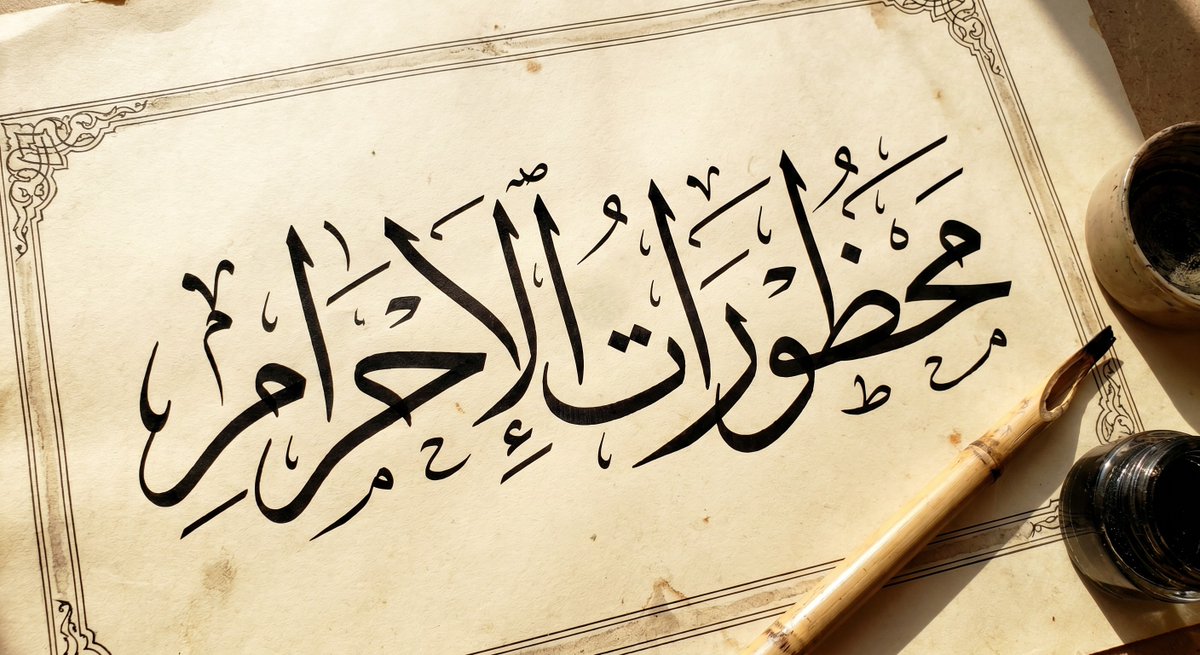 محظورات الإحرام